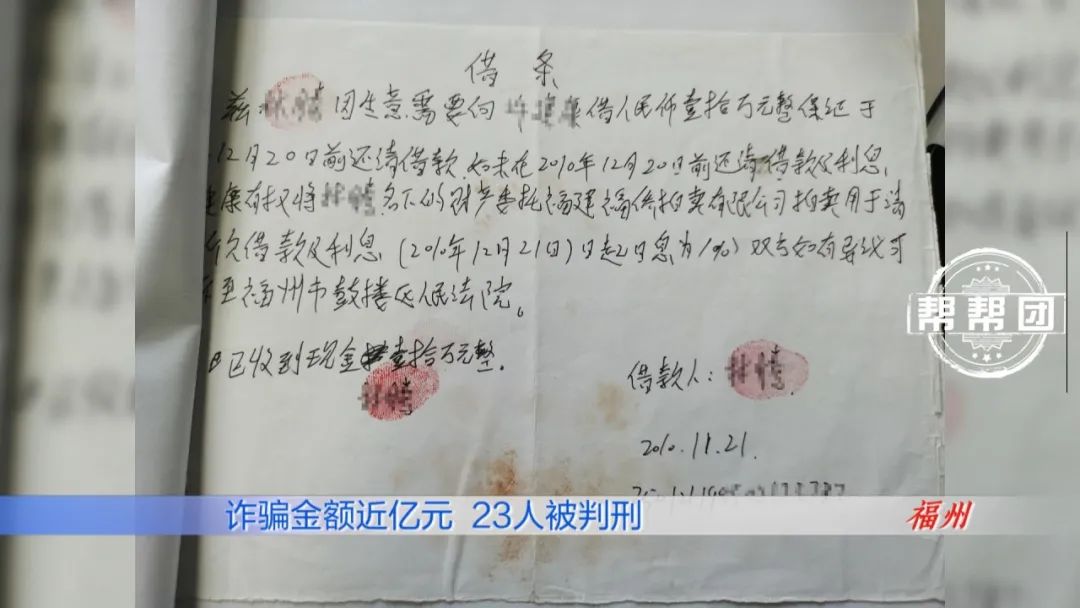 借条
兹 因生意需要向 借人民币壹拾万元整保证于
12月20日前还清借款.如未在2010年12月20日前还清借款及利息,
康有权将 名下的财产委托福建 拍卖有限公司拍卖用于清
欠借款及利息(2010年12月21日)日起 日息为1%)双方如有 可
至福州市鼓楼区人民法院。
已收到现金 壹拾万元整.
借款人:
2010.11.21.
帮帮团
诈骗金额近亿元 23人被判刑
福州